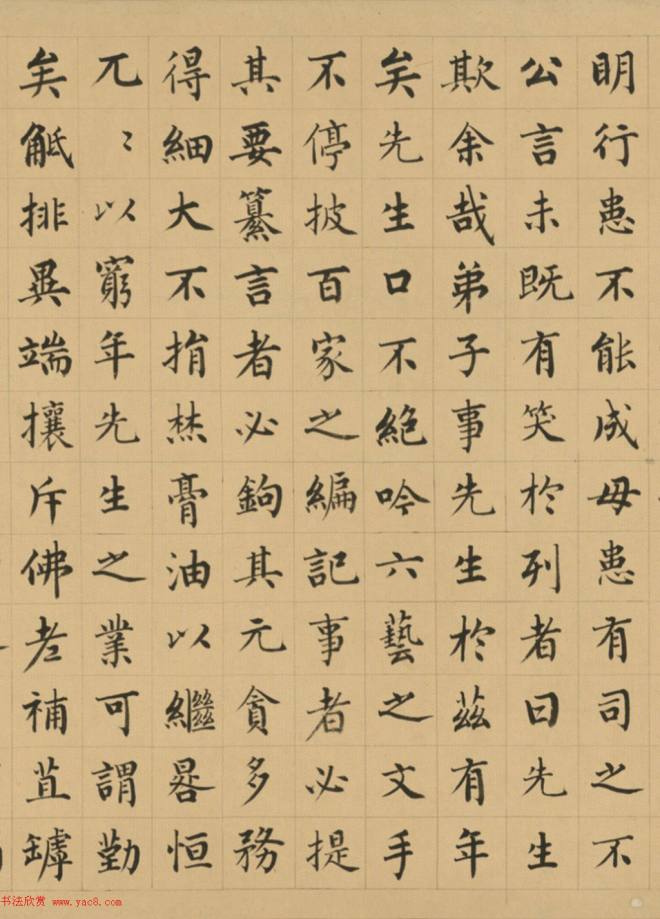 明行患不能成毋患有司之不
公言未既有笑於列者曰先生
欺余哉弟子事先生於茲有年
矣先生口不絕吟六藝之文手
不停披百家之編記事者必提
其要纂言者必鉤其元貪多務
得細大不捐焚膏油以繼晷恒
兀〻以窮年先生之業可謂勤
矣觝排異端攘斥佛老補苴罅
书法欣赏 www.yac8.com